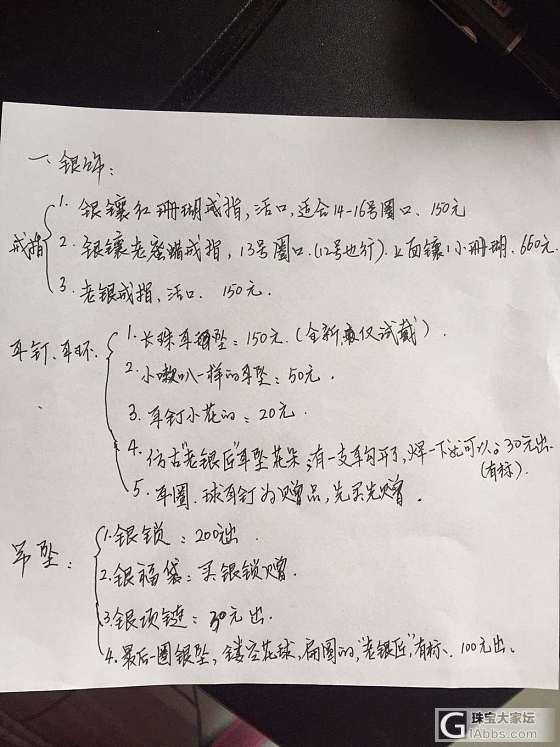 一、银饰：
戒指
1. 银镶红珊瑚戒指，活口，适合14-16号圈口、150元
2. 银镶老蜜蜡戒指，13号圈口.(12号也行).上面镶1小珊瑚.660元.
3. 老银戒指，活口. 150元.
耳钉、耳环.
1. 长珠耳坠：150元.(全新仅试戴).
2. 小喇叭一样的耳坠：50元.
3. 耳钉小花的：20元.
4. 仿古"老银匠"耳坠花朵,有一支耳勾开了,焊一下就可以。30元出.
(有标).
5. 耳圈.球耳钉为赠品,先买先赠.
吊坠：
1. 银锁：200出.
2. 银福袋：买银锁赠.
3. 银项链：30元出.
4. 最后一圈银坠,镂空花球,扁圆的,"老银匠",有标、100元出、
珠宝大家坛
G
iAbbs.com